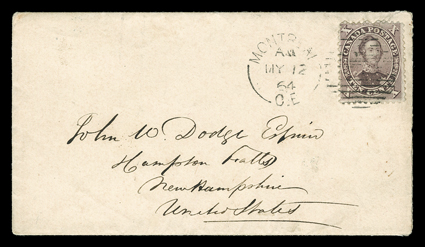 MONTREAL
AM
MY 12
64
C.E
CANADA POSTAGE
TEN CENTS
John W. Dodge Esquire
Hampton Falls
New Hampshire
United States